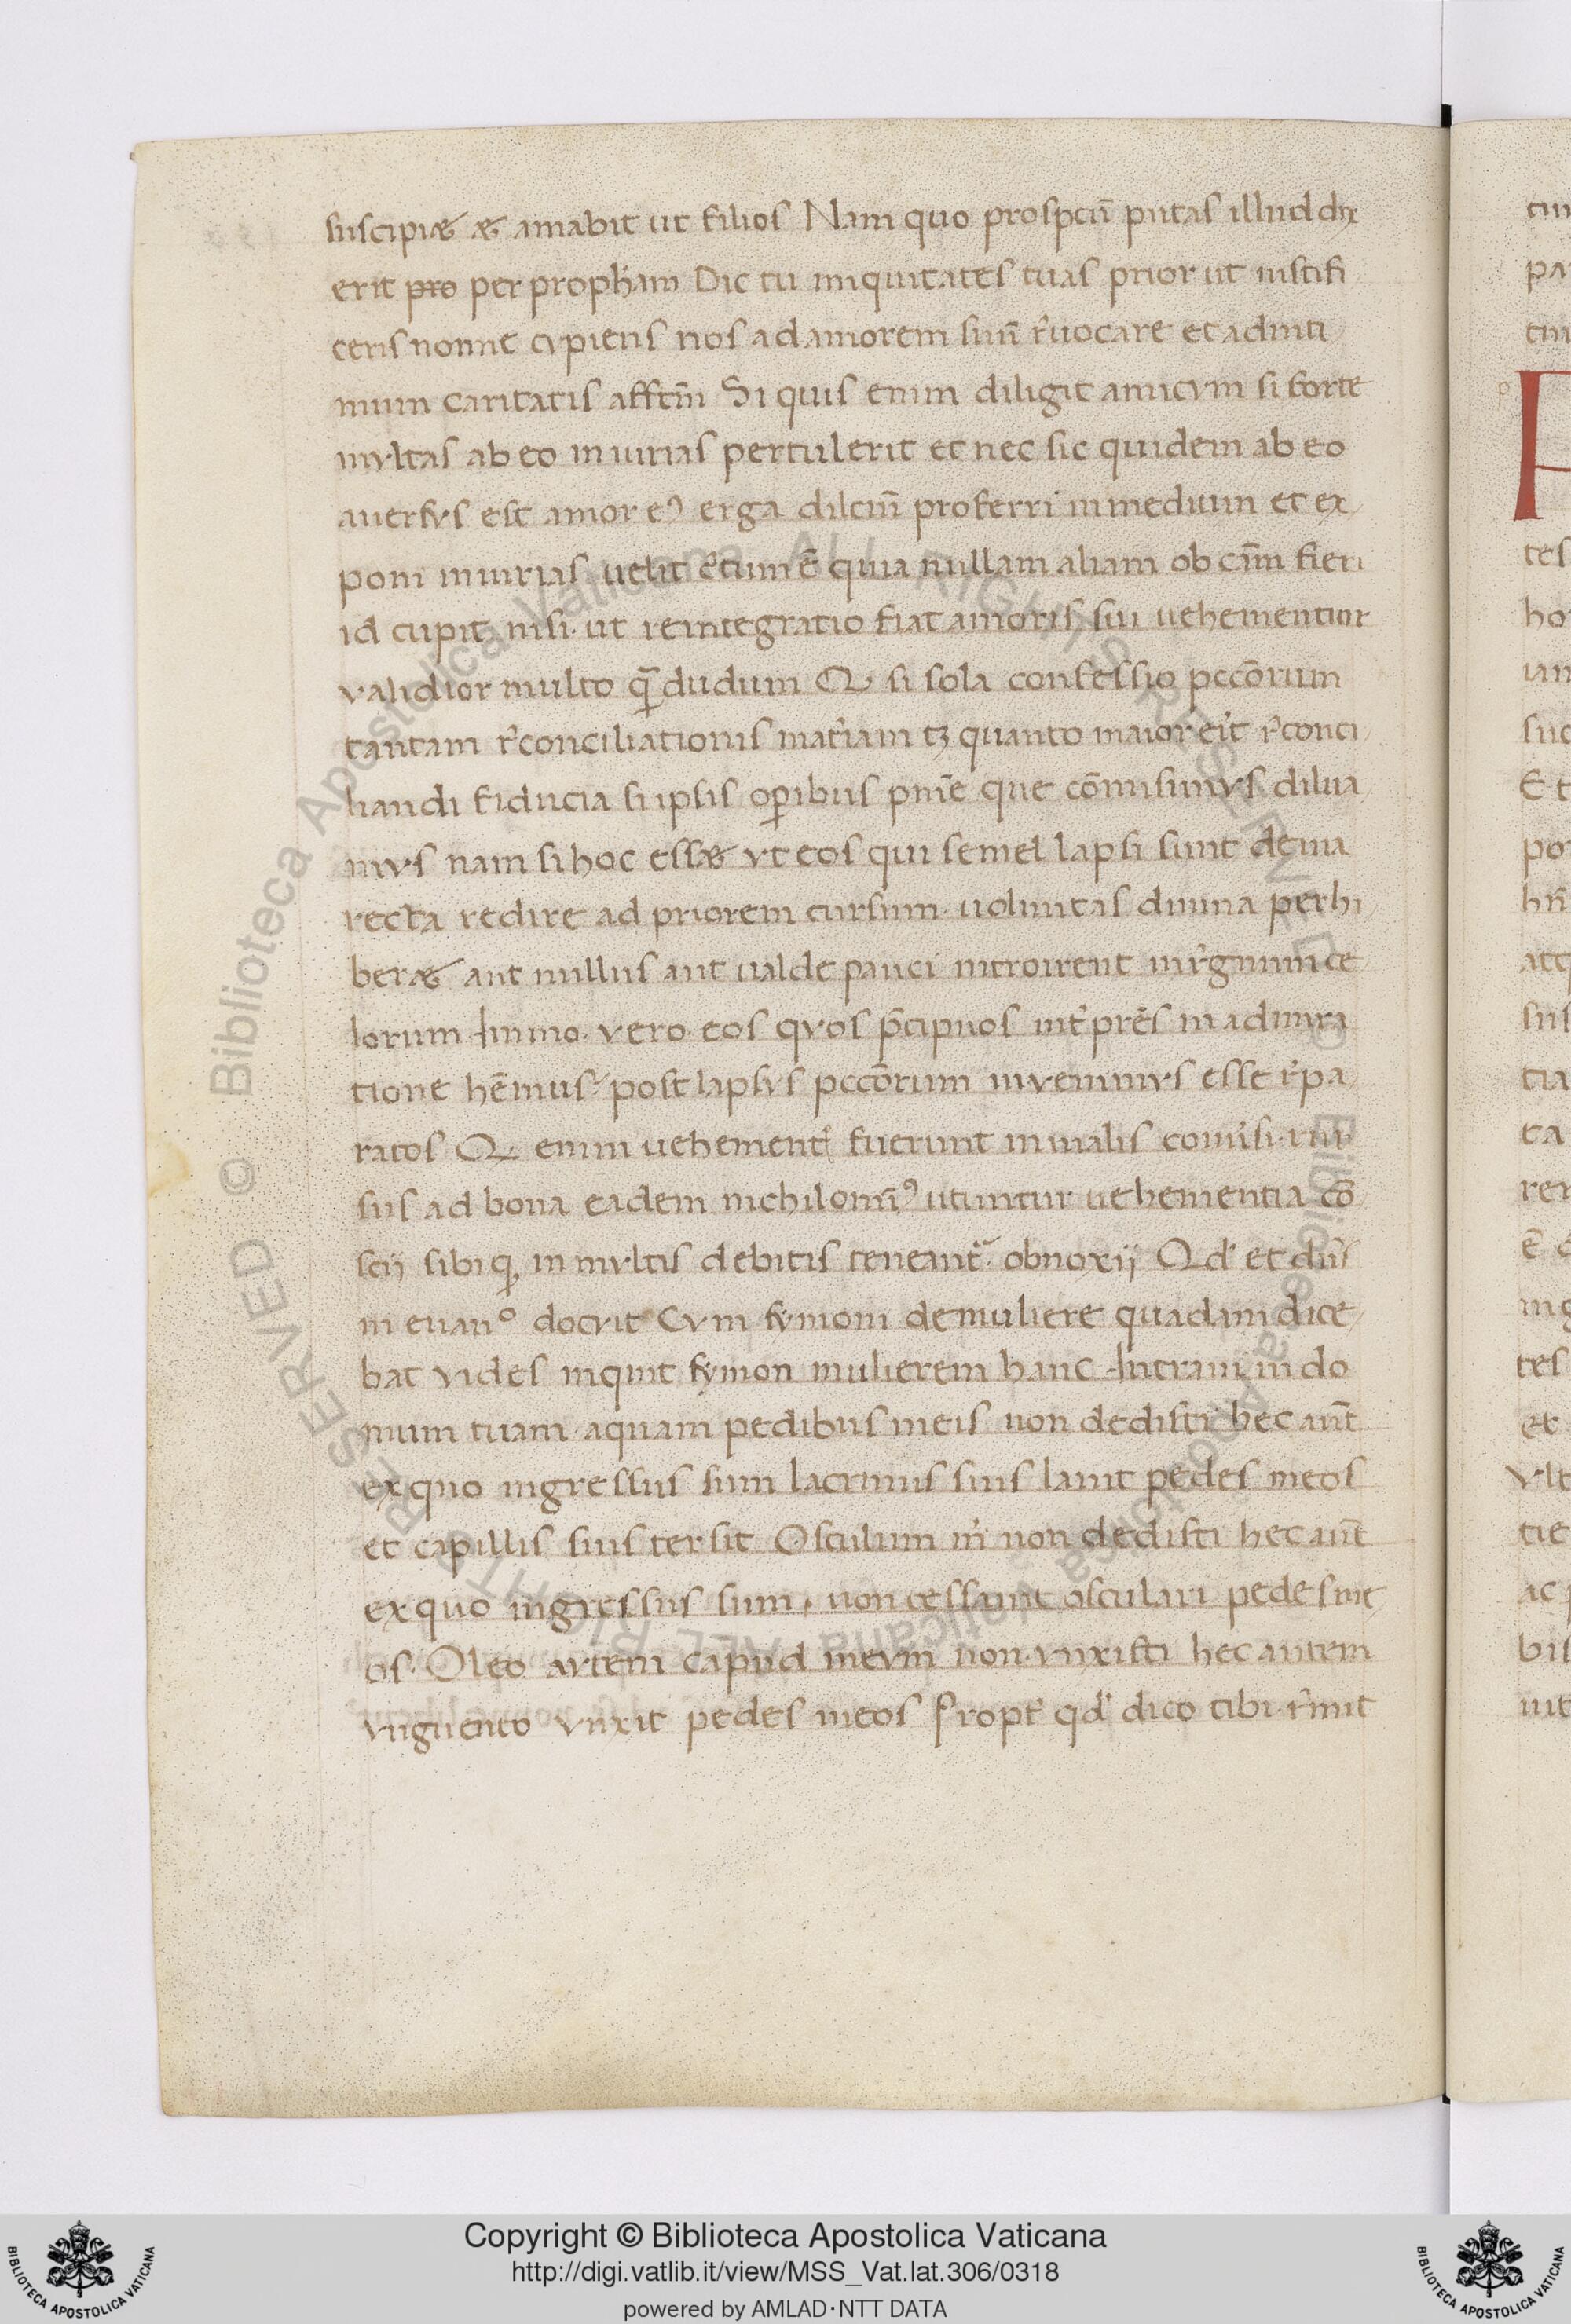 suscipiæ æ amabit ut filios Nam quo prospcū putas illud dix
erit pro per propħam Dic tu iniquitates tuas prior ut iustifi
ceris nonne cvpiens nos ad amorem suū r̉uocare et ad inti
mum caritatis afftm̄ Si quis enim diligit amicvm si forte
mvltas ab eo iniurias pertulerit et nec sic quidem ab eo
auersvs est amor eꝰ erga dilcm̄ proferri in medium et ex
poni iniurias uelit c̉tum ē quia nullam aliam ob cām fieri
id cupit nisi ut reintegratio fiat amoris sui uehementior
validior multo q̄ dudum Q si sola confessio pccōrum
tantam r̉conciliationis mat̉iam tꝫ quanto maior eit̉ r̉conci
liandi fiducia si ipsis oꝑibus pn̄ie que cōmisimvs dilua
mvs nam si hoc essæ vt eos qui semel lapsi sunt de uia
recta redire ad priorem cursum uoluntas diuina perhi
beræ aut nullus aut ualde pauci introirent in r̉gnum ce
lorum Immo vero eos qvos p̄cipuos int̉ pr̄es in admira
tione hēmus post lapsvs pccōrum invenimvs esse r̉pa
ratos Q enim uehement̉ fuerunt in malis comisi rur
sus ad bona eadem nichilomīꝰ utuntur uehementia cō
scij sibi ꝙ in mvltis debitis teneant̉ obnoxij Qd̉ et dn̄s
in euanº docvit Cvm symoni de muliere quadam dice
bat vides inquit symon mulierem hanc Intraui in do
mum tuam aquam pedibus meis non dedisti hec aut̄
ex quo ingressus sum lacrimis suis lauit pedes meos
et capillis suis tersit Osculum m̉ non dedisti hec aut̄
ex quo ingressus sum non cessauit osculari pedes me
os Oleo avtem capud mevm non vnxisti hec autem
vnguento vnxit pedes meos Propt̉ qd̉ dico tibi r̉mit
Copyright © Biblioteca Apostolica Vaticana
http://digi.vatlib.it/view/MSS_Vat.lat.306/0318
powered by AMLAD·NTT DATA